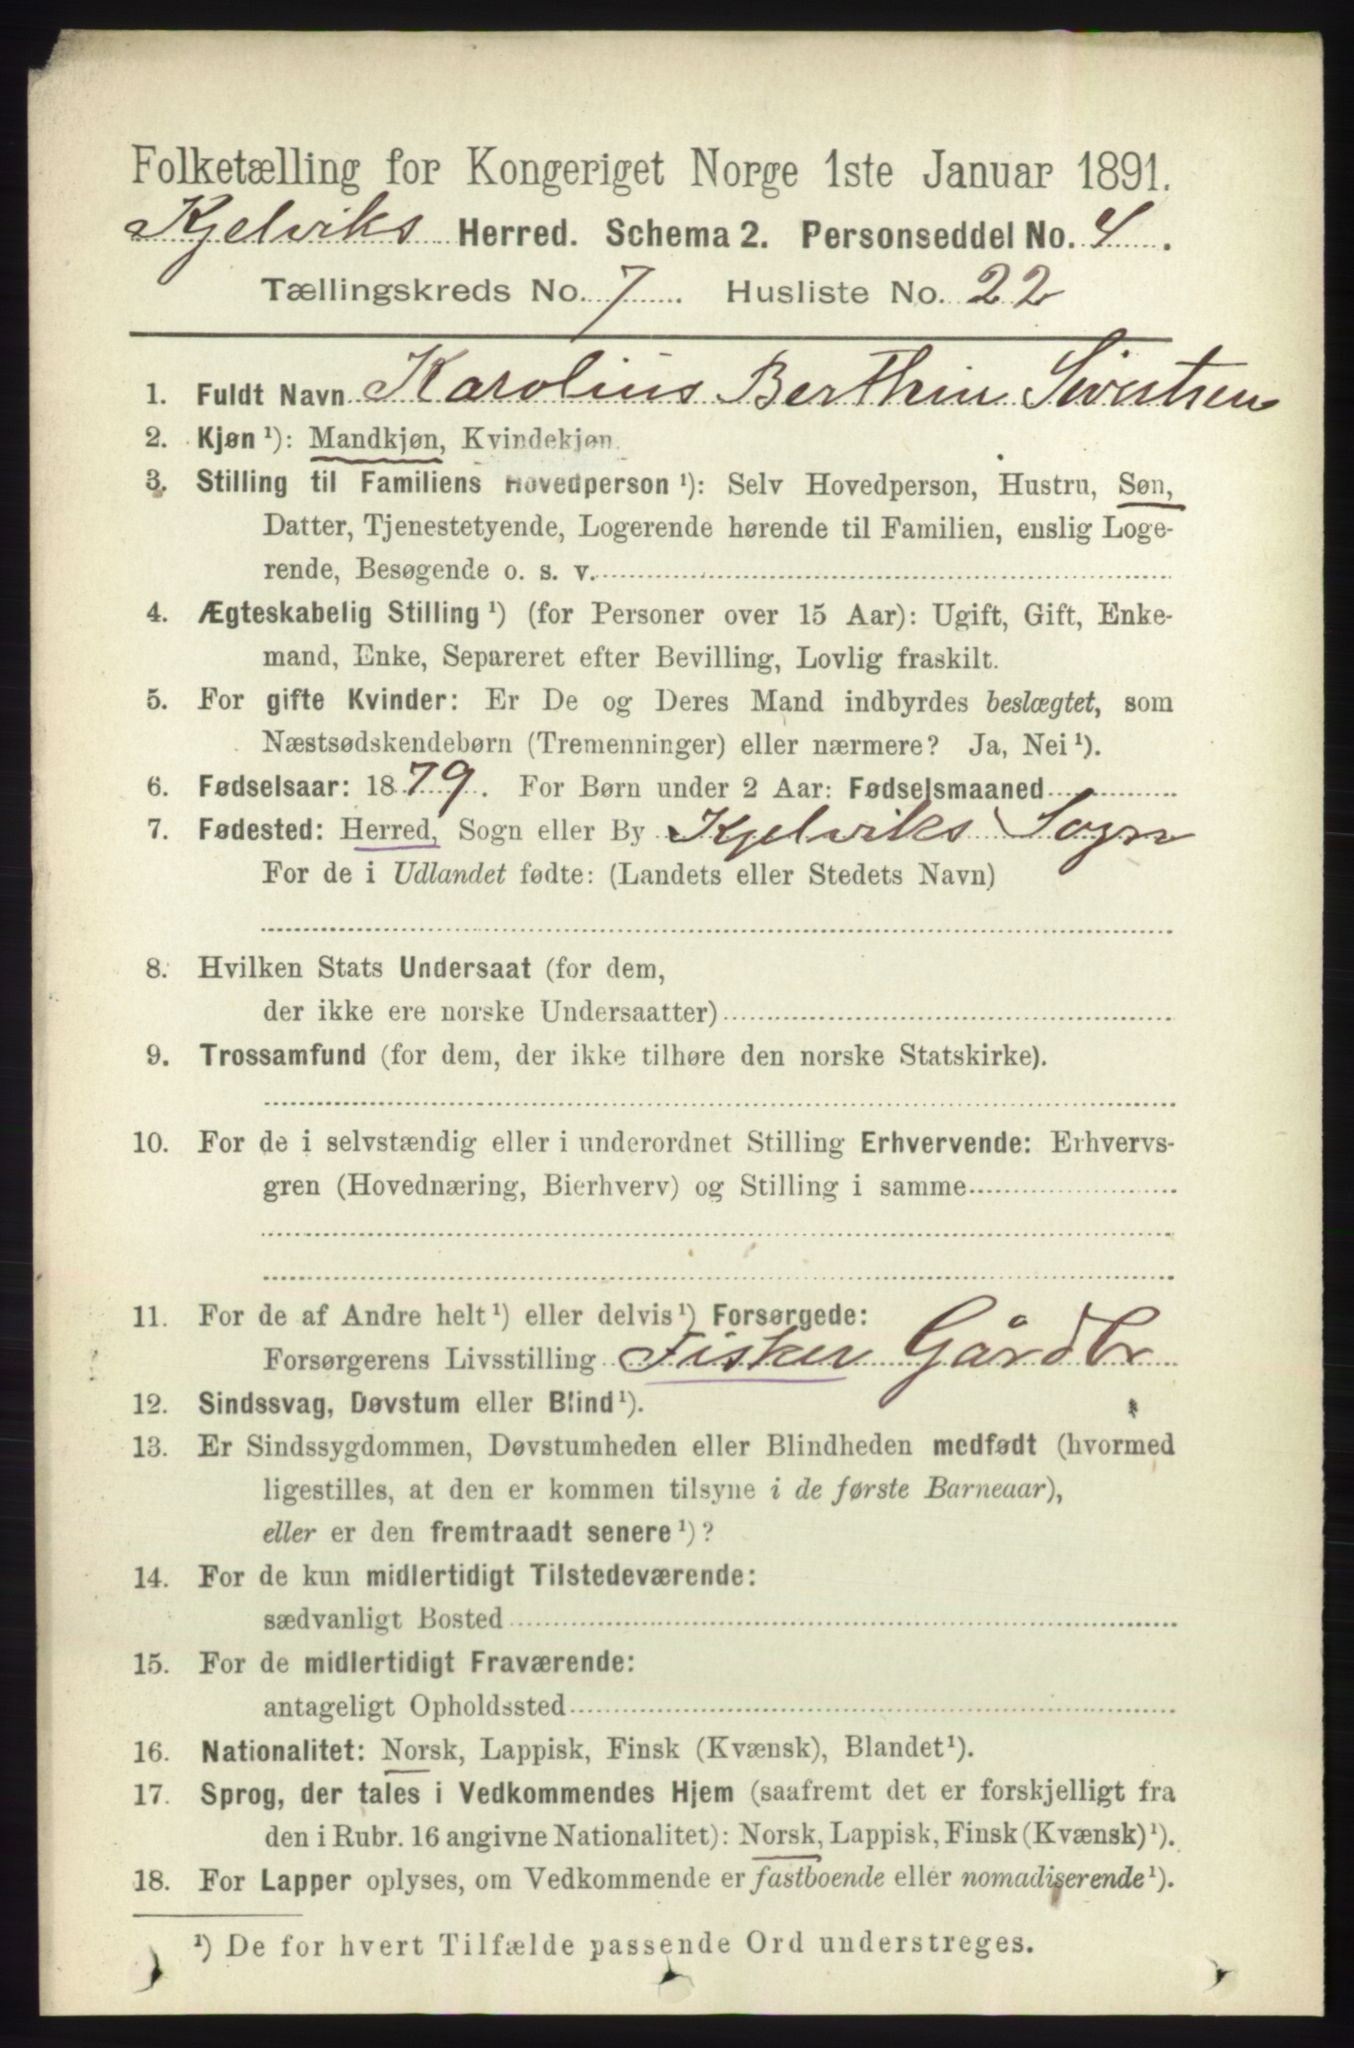 Folketælling for Kongeriget Norge 1ste Januar 1891.
Kjelviks Herred. Schema 2. Personseddel No. 4.
Tællingskreds No. 7 Husliste No. 22
1. Fuldt Navn Karolius Berthin Sivertsen
2. Kjøn¹): Mandkjøn, Kvindekjøn.
3. Stilling til Familiens Hovedperson¹): Selv Hovedperson, Hustru, Søn,
Datter, Tjenestetyende, Logerende hørende til Familien, enslig Loge-
rende, Besøgende o. s. v.
4. Ægteskabelig Stilling¹) (for Personer over 15 Aar): Ugift, Gift, Enke-
mand, Enke, Separeret efter Bevilling, Lovlig fraskilt.
5. For gifte Kvinder: Er De og Deres Mand indbyrdes beslægtet, som
Næstsødskendebørn (Tremenninger) eller nærmere? Ja, Nei¹).
6. Fødselsaar: 1879. For Børn under 2 Aar: Fødselsmaaned
7. Fødested: Herred, Sogn eller By Kjelviks Sogn
For de i Udlandet fødte: (Landets eller Stedets Navn)
8. Hvilken Stats Undersaat (for dem,
der ikke ere norske Undersaatter)
9. Trossamfund (for dem, der ikke tilhøre den norske Statskirke).
10. For de i selvstændig eller i underordnet Stilling Erhvervende: Erhvervs-
gren (Hovednæring, Bierhverv) og Stilling i samme
11. For de af Andre helt¹) eller delvis¹) Forsørgede:
Forsørgerens Livsstilling Fisker Gårdbr
12. Sindssvag, Døvstum eller Blind¹).
13. Er Sindssygdommen, Døvstumheden eller Blindheden medfødt (hvormed
ligestilles, at den er kommen tilsyne i de første Barneaar),
eller er den fremtraadt senere¹)?
14. For de kun midlertidigt Tilstedeværende:
sædvanligt Bosted
15. For de midlertidigt Fraværende:
antageligt Opholdssted
16. Nationalitet: Norsk, Lappisk, Finsk (Kvænsk), Blandet¹).
17. Sprog, der tales i Vedkommendes Hjem (saafremt det er forskjelligt fra
den i Rubr. 16 angivne Nationalitet): Norsk, Lappisk, Finsk (Kvænsk)¹).
18. For Lapper oplyses, om Vedkommende er fastboende eller nomadiserende¹).
¹) De for hvert Tilfælde passende Ord understreges.